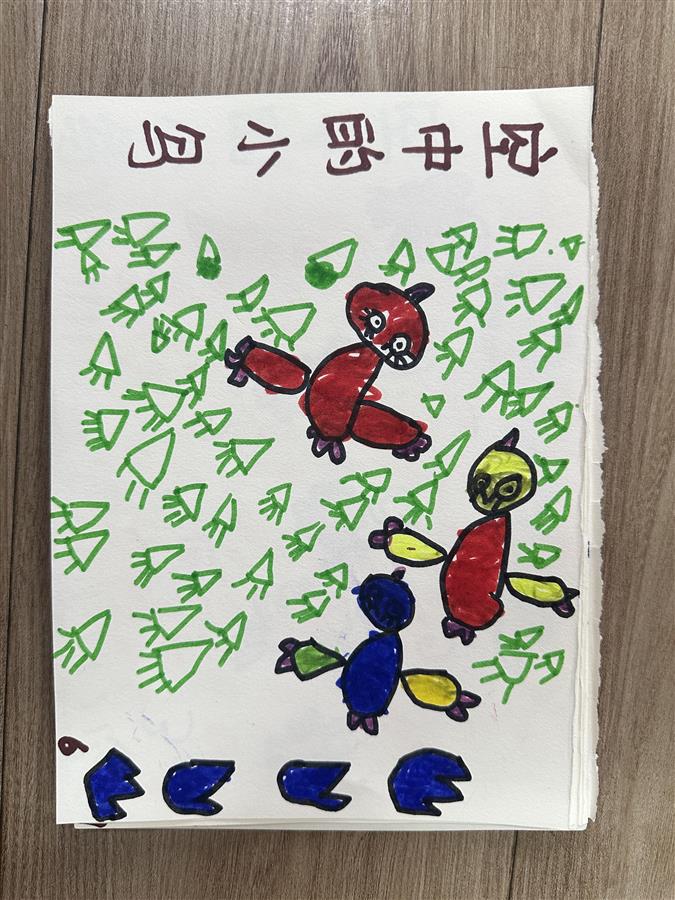 空中的小鸟